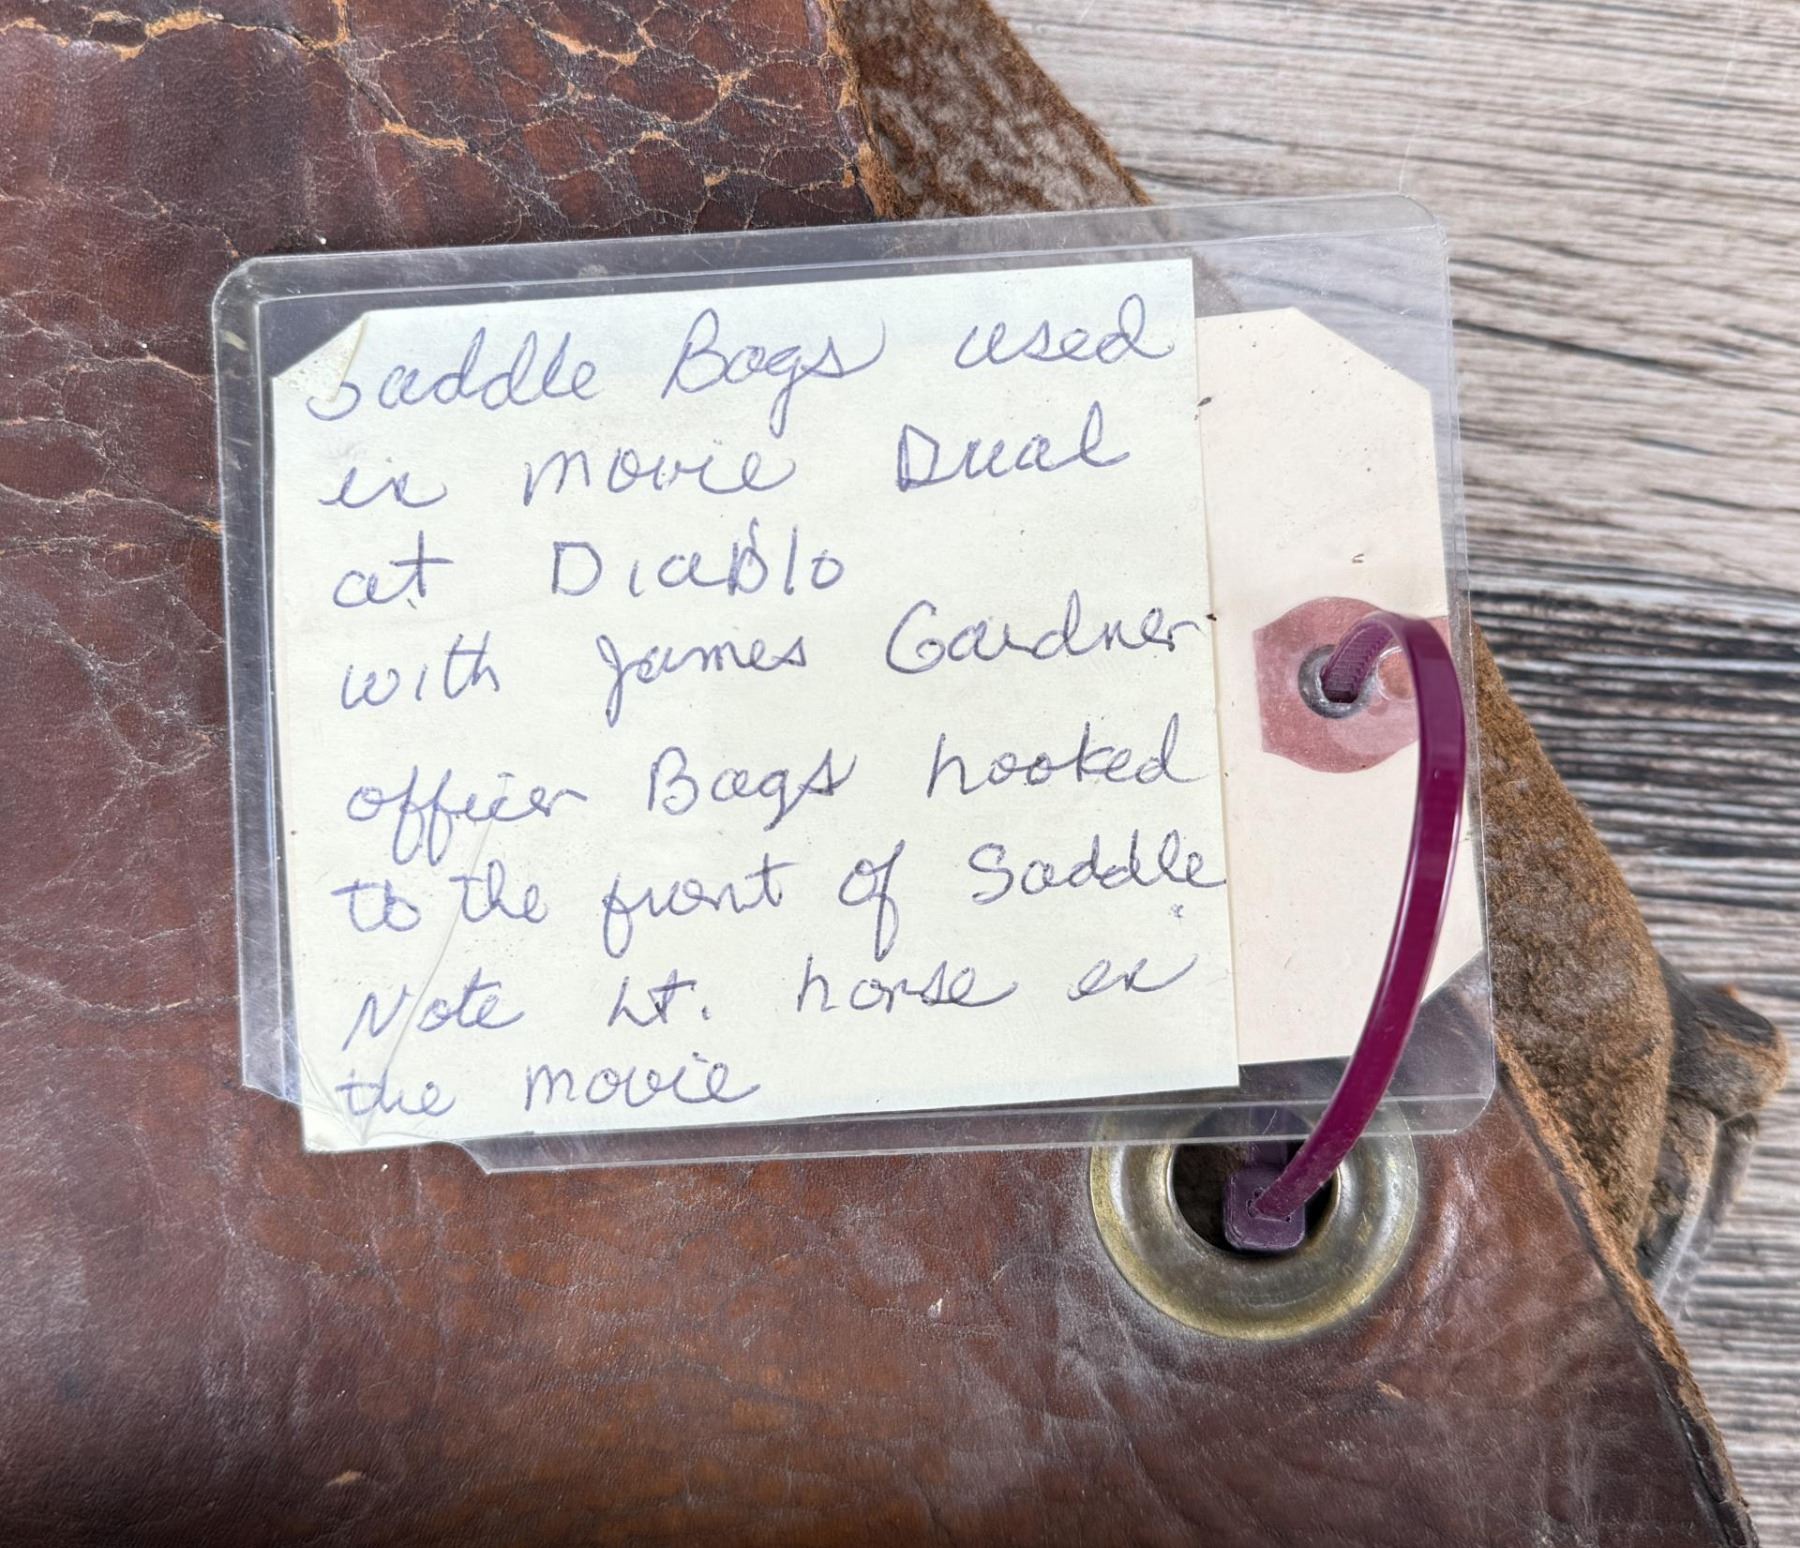 Saddle Bags used
in movie Dual
at Diablo
with James Gardner
officer Bags hooked
to the front of Saddle
Note Lt. horse in
the movie